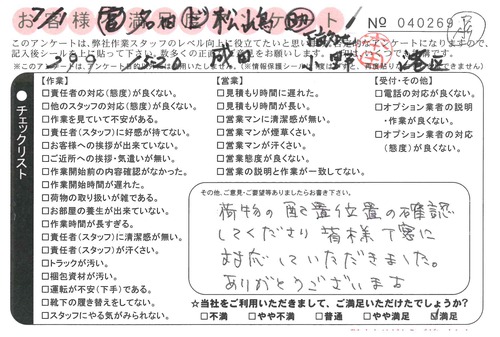 お客様満足アンケート! № 040269
このアンケートは、弊社作業スタッフのレベル向上に役立てたいと思い
記入後シール
成田 小野 港区
チェックリスト
【作業】
□責任者の対応(態度)が良くない。
□他のスタッフの対応(態度)が良くない。
□作業を見ていて不安がある。
□責任者(スタッフ)に好感が持てない。
□お客様への挨拶が出来ていない。
□ご近所への挨拶・気遣いが無い。
□作業開始前の内容確認がなかった。
□作業開始時間が遅れた。
□荷物の取り扱いが雑である。
□お部屋の養生が出来ていない。
□作業時間が長すぎる。
□責任者(スタッフ)に清潔感が無い。
□責任者(スタッフ)が汗くさい。
□トラックが汚い。
□梱包資材が汚い。
□運転が不安(下手)である。
□靴下の履き替えをしてない。
□スタッフにやる気がみられない。
【営業】
□見積もり時間に遅れた。
□見積もり時間が長い。
□営業マンに清潔感が無い。
□営業マンが煙草くさい。
□営業マンが汗くさい。
□営業態度が良くない。
□営業の説明と作業が一致してない。
【受付・その他】
□電話の対応が良くない。
□オプション業者の説明
・作業が良くない。
□オプション業者の対応
(態度)が良くない。
その他、ご意見・ご要望等ありましたらお書き下さい。
荷物の配置位置の確認
してくださり皆様丁寧に
対応していただきました。
ありがとうございます
☆当社をご利用いただきまして、ご満足いただけたでしょうか?
□不満 □やや不満 □普通 □やや満足 ☑満足